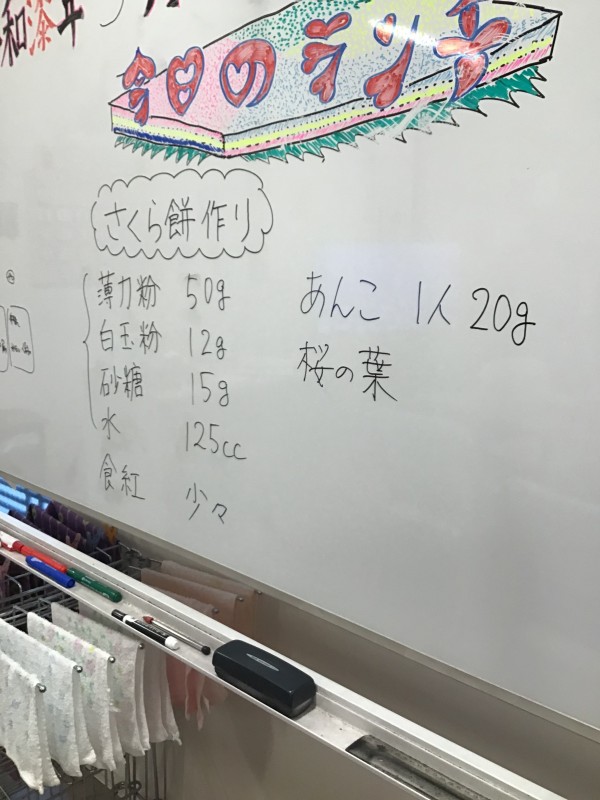 今日のランチ
さくら餅作り
薄力粉 50g
白玉粉 12g
砂糖 15g
水 125cc
食紅 少々
あんこ 1人 20g
桜の葉